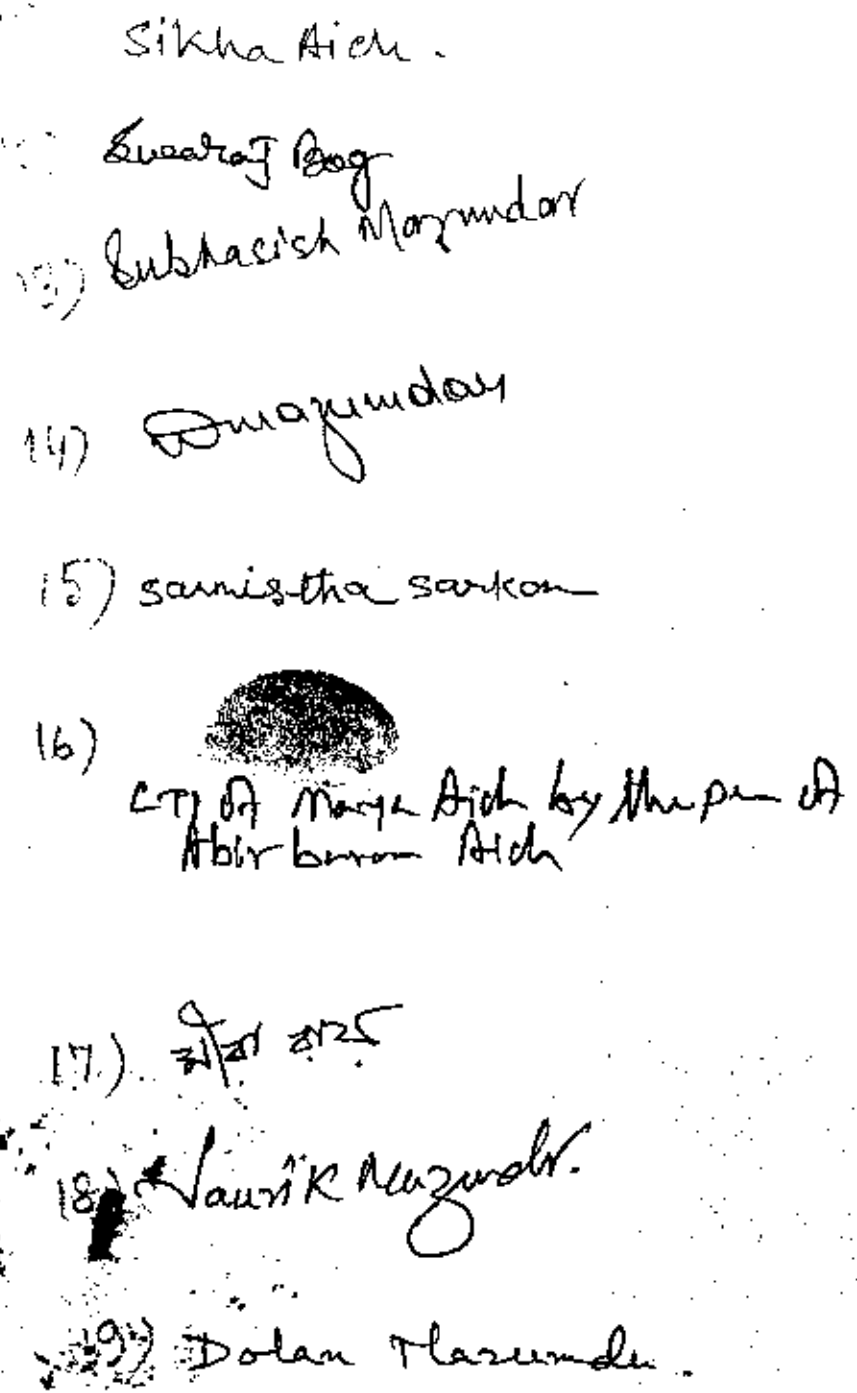 Sikha Aich.
Bag
13) Subhasish Mazumdar
14) Dmazumdar
15) sarmistha sarkar
16)
LTI of Aich by the pen of
Abir baran Aich
17.) মীরা রায়
18) Mazumdr.
19) Dolan Mazumder.